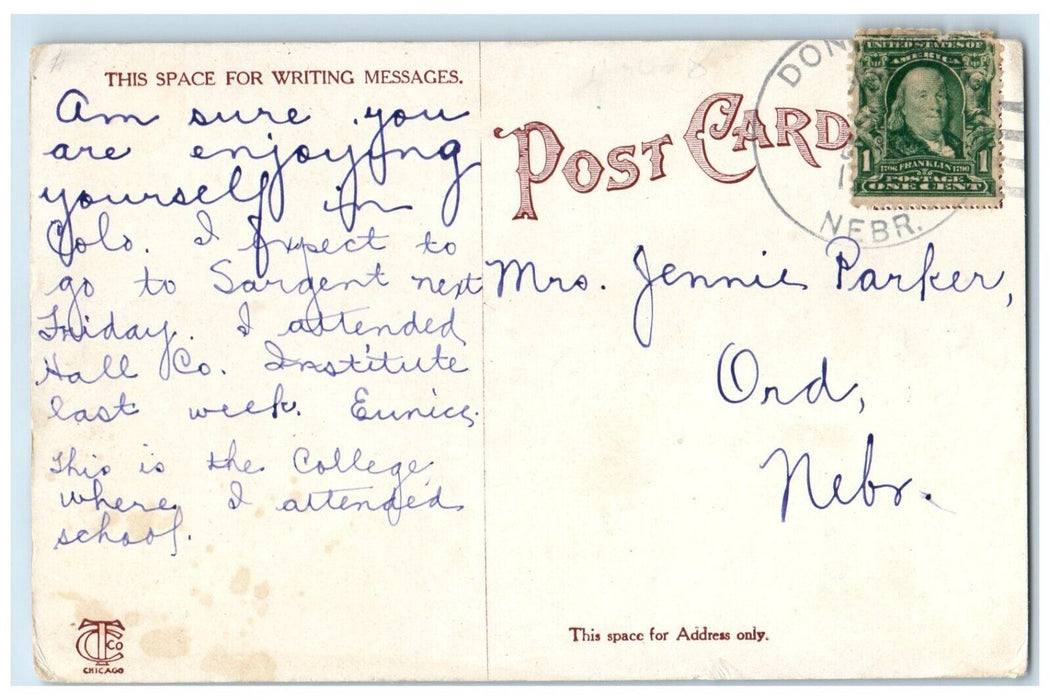 THIS SPACE FOR WRITING MESSAGES.
Am sure you
are enjoying
yourself in
Colo. I expect to
go to Sargent next
Friday. I attended
Hall Co. Institute
last week. Eunice.
This is the College
where I attended
school.
CTCo
CHICAGO
POST CARD
DON
NEBR.
UNITED STATES OF
AMERICA
1 1706 FRANKLIN 1790 1
POSTAGE
ONE CENT
Mrs. Jennie Parker,
Ord,
Nebr.
This space for Address only.